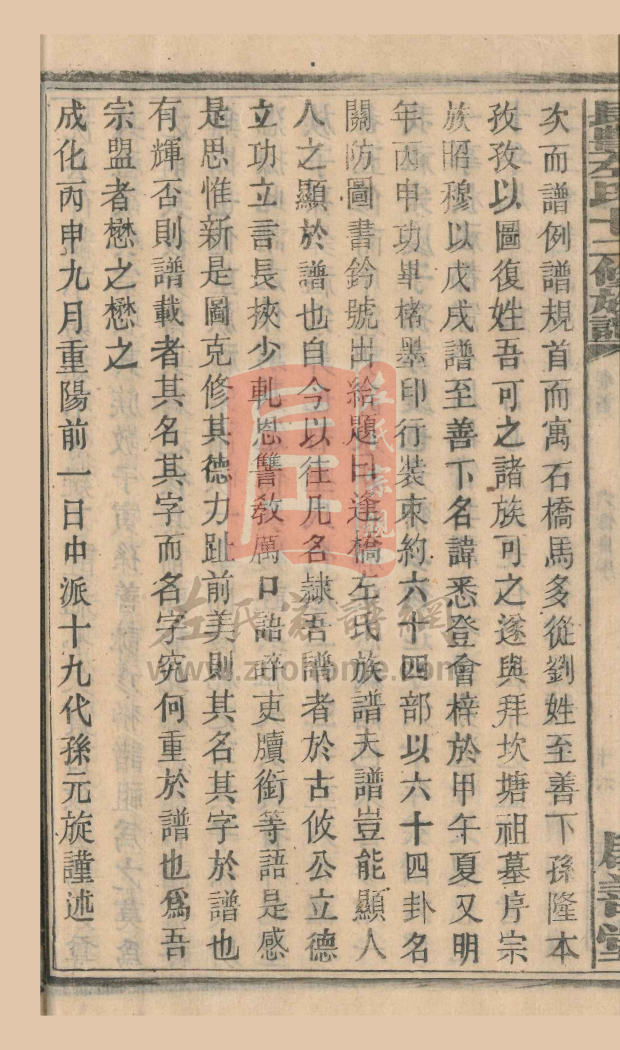 次而譜例譜規首而寓石橋馬多從劉姓至善下孫隆本
孜孜以圖復姓吾可之諸族可之遂與拜坎塘祖墓序宗
族昭穆以戊戌譜至善下名諱悉登會梓於甲午夏又明
年丙申功畢楮墨印行裝束約六十四部以六十四卦名
關防圖書鈐號出給題曰逢橋左氏族譜夫譜豈能顯人
人之顯於譜也自今以往凡名隷吾譜者於古攸公立德
立功立言長挾少軋恩讐敎厲口語訐吏牘銜等語是感
是思惟新是圖克修其德力趾前美則其名其字於譜也
有輝否則譜載者其名其字而名字究何重於譜也爲吾
宗盟者懋之懋之
成化丙申九月重陽前一日中派十九代孫元旋謹述
左氏十二修族譜
善堂
左氏宗譜網
www.zuohome.com